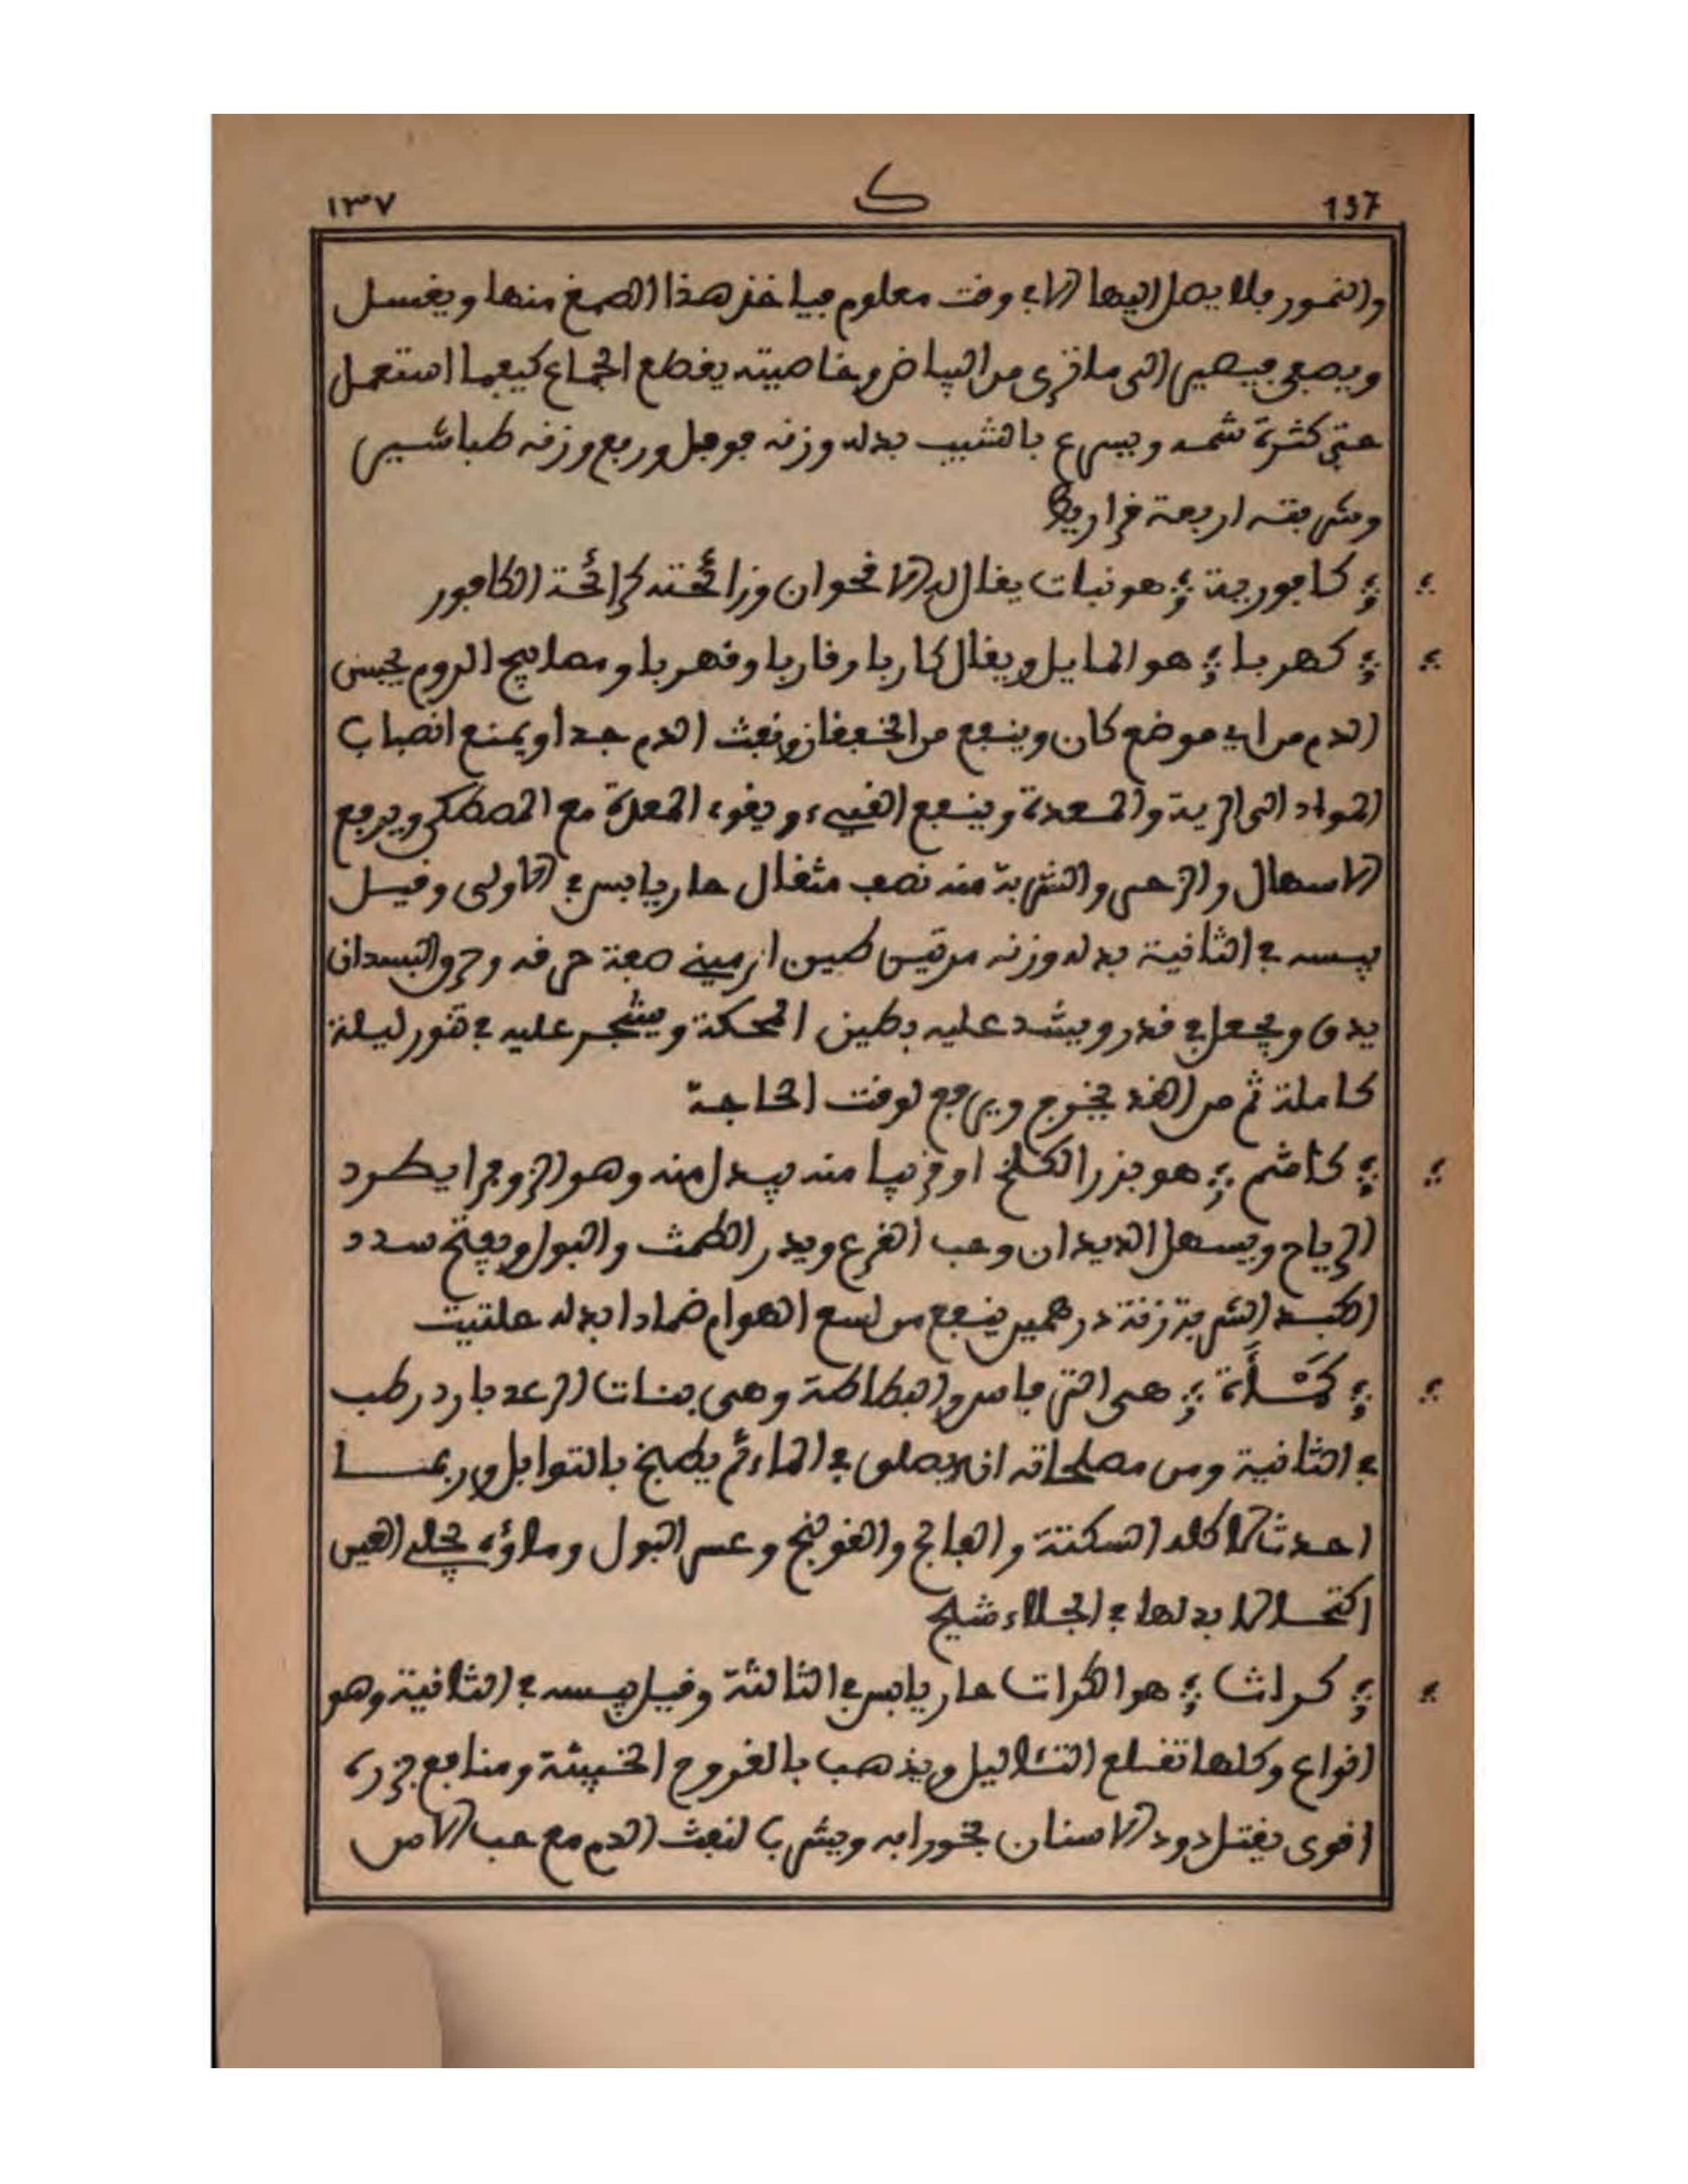 137 ك ١٣٧
والنمور فلا يصل اليها الا في وقت معلوم فياخذ هذا الصمغ منها ويغسل
ويصفى فيصير الى ما ترى من البياض وخاصيته يقطع الجماع كيفما استعمل
حتى كثرة شمه ويسرع بالشيب بدله وزنه فوفل وربع وزنه طباشير
وشربته اربعة قراريط
كافورية هو نبات يقال له الاقحوان ورائحته كرائحة الكافور
كهربا هو المايل ويقال كاربا وقاربا وقهربا ومصابيح الروم يحبس
الدم من اي موضع كان وينفع من الخفقان ونفث الدم جدا ويمنع انصباب
المواد الى الرية والمعدة وينفع القيء ويقوي المعدة مع المصطكى ويرفع
الاسهال والزحير والشربة منه نصف مثقال حار يابس في الاولى وقيل
يبسه في الثانية بدله وزنه مرتين طين ارميني صفة حرقه وحرق البسد ان
يدق ويجعل في قدر ويشد عليه بطين الحكمة ويشجر عليه في تنور ليلة
كاملة ثم من الغد يخرج ويرفع لوقت الحاجة
كاشم هو بزر الكلخ او قريبا منه يبدل منه وهو الزوفرا يطرد
الرياح ويسهل الديدان وحب القرع ويدر الطمث والبول ويفتح سدد
الكبد الشربة زنة درهمين ينفع من لسع الهوام ضمادا بدله حلتيت
كَمْأَة هي الترفاس والبطاطة وهي بنات الرعد بارد رطب
في الثانية ومن مصلحاته ان يصلق في الماء ثم يطبخ بالتوابل وربما
احدث اكله السكتة والفالج والقولنج وعسر البول وماؤه يجلي العين
اكتحالا بدلها في الجلاء شيح
كراث هو الكرات حار يابس في الثالثة وقيل يبسه في الثانية وهو
انواع وكلها تقلع الثئاليل ويذهب بالقروح الخبيثة ومنافع بزره
اقوى يقتل دود الاسنان بخورا به ويشرب لنفث الدم مع حب الاس